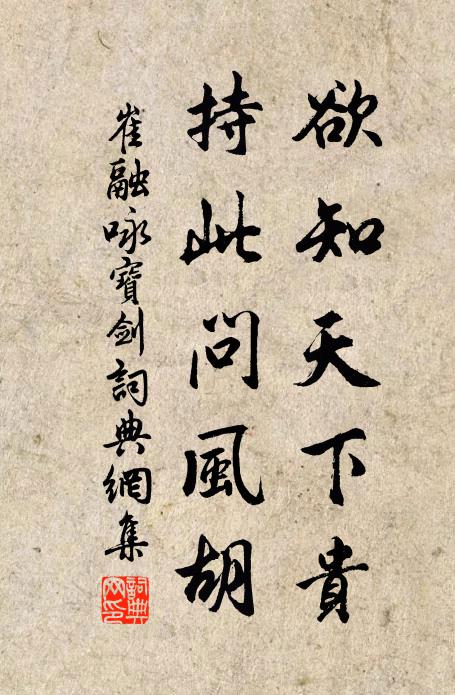 欲知天下貴
持此問風胡
崔融咏寶劍詞典網集
詞典網印